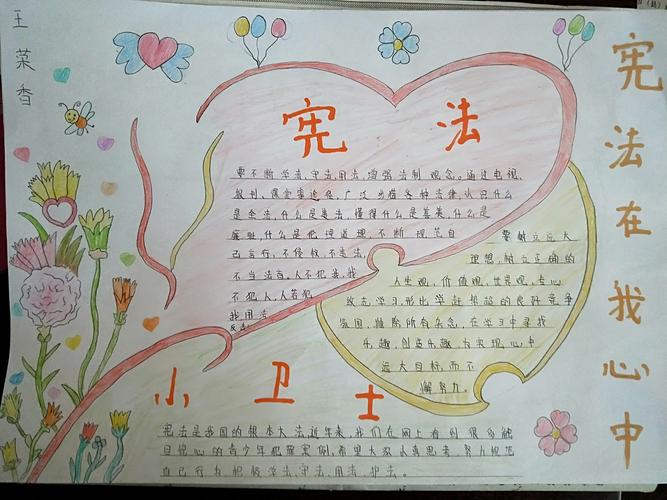 王荣香
宪法在我心中
宪法
要不断学法、守法、用法,增强法制观念。通过电视、
报刊、课堂等途径,广泛步猎各种法律,认识什么
是合法,什么是违法,懂得什么是善美,什么是
耻,什么是伦理道理,不断规范自
己言行,不侵权,不违法,
不当法盲。人不犯法,我
不犯人,人若犯
我用法
反击。
要树立远大
理想,树立正确的
人生观,价值观,世界观,专心
致志学习,形比学赶帮超的良好竞争
氛围,摒除所有杂念,在学习中寻找
乐趣,创造乐趣,为实现心中
远大目标而不
懈努力。
小卫士
宪法是我国的根本大法,近年来,我们在网上看到很多触
目惊心的青少年犯罪案例,希望大家认真思考,努力规范
自己行为,积极学法、守法、用法、护法。